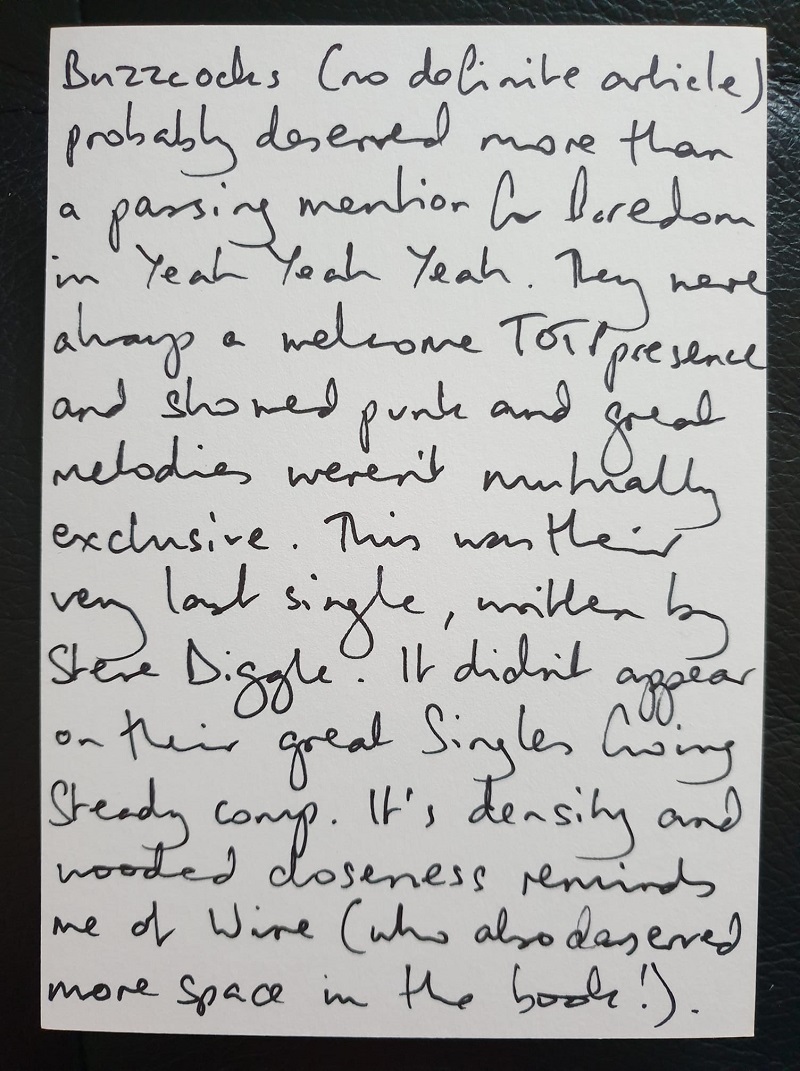 Buzzcocks (no definite article)
probably deserved more than
a passing mention for Boredom
in Yeah Yeah Yeah. They were
always a welcome TOTP presence
and showed punk and great
melodies weren't mutually
exclusive. This was their
very last single, written by
Steve Diggle. It didn't appear
on their great Singles Going
Steady comp. It's density and
wooded closeness reminds
me of Wire (who also deserved
more space in the book!).